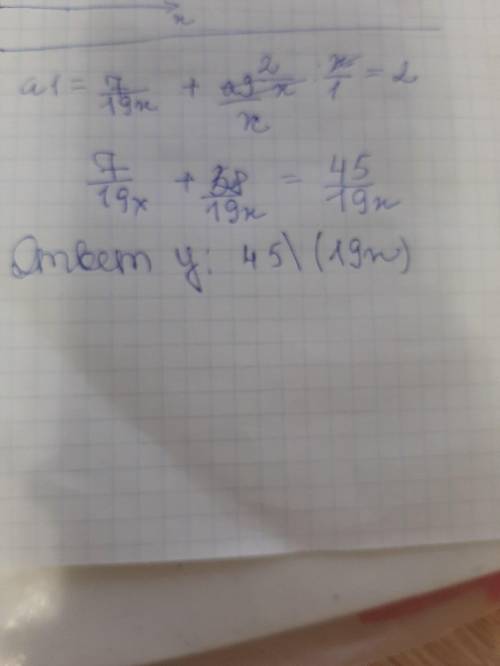 x
a1 = 7/19x + 2/x · x/1 = 2
7/19x + 38/19x = 45/19x
Ответ у: 45\(19x)